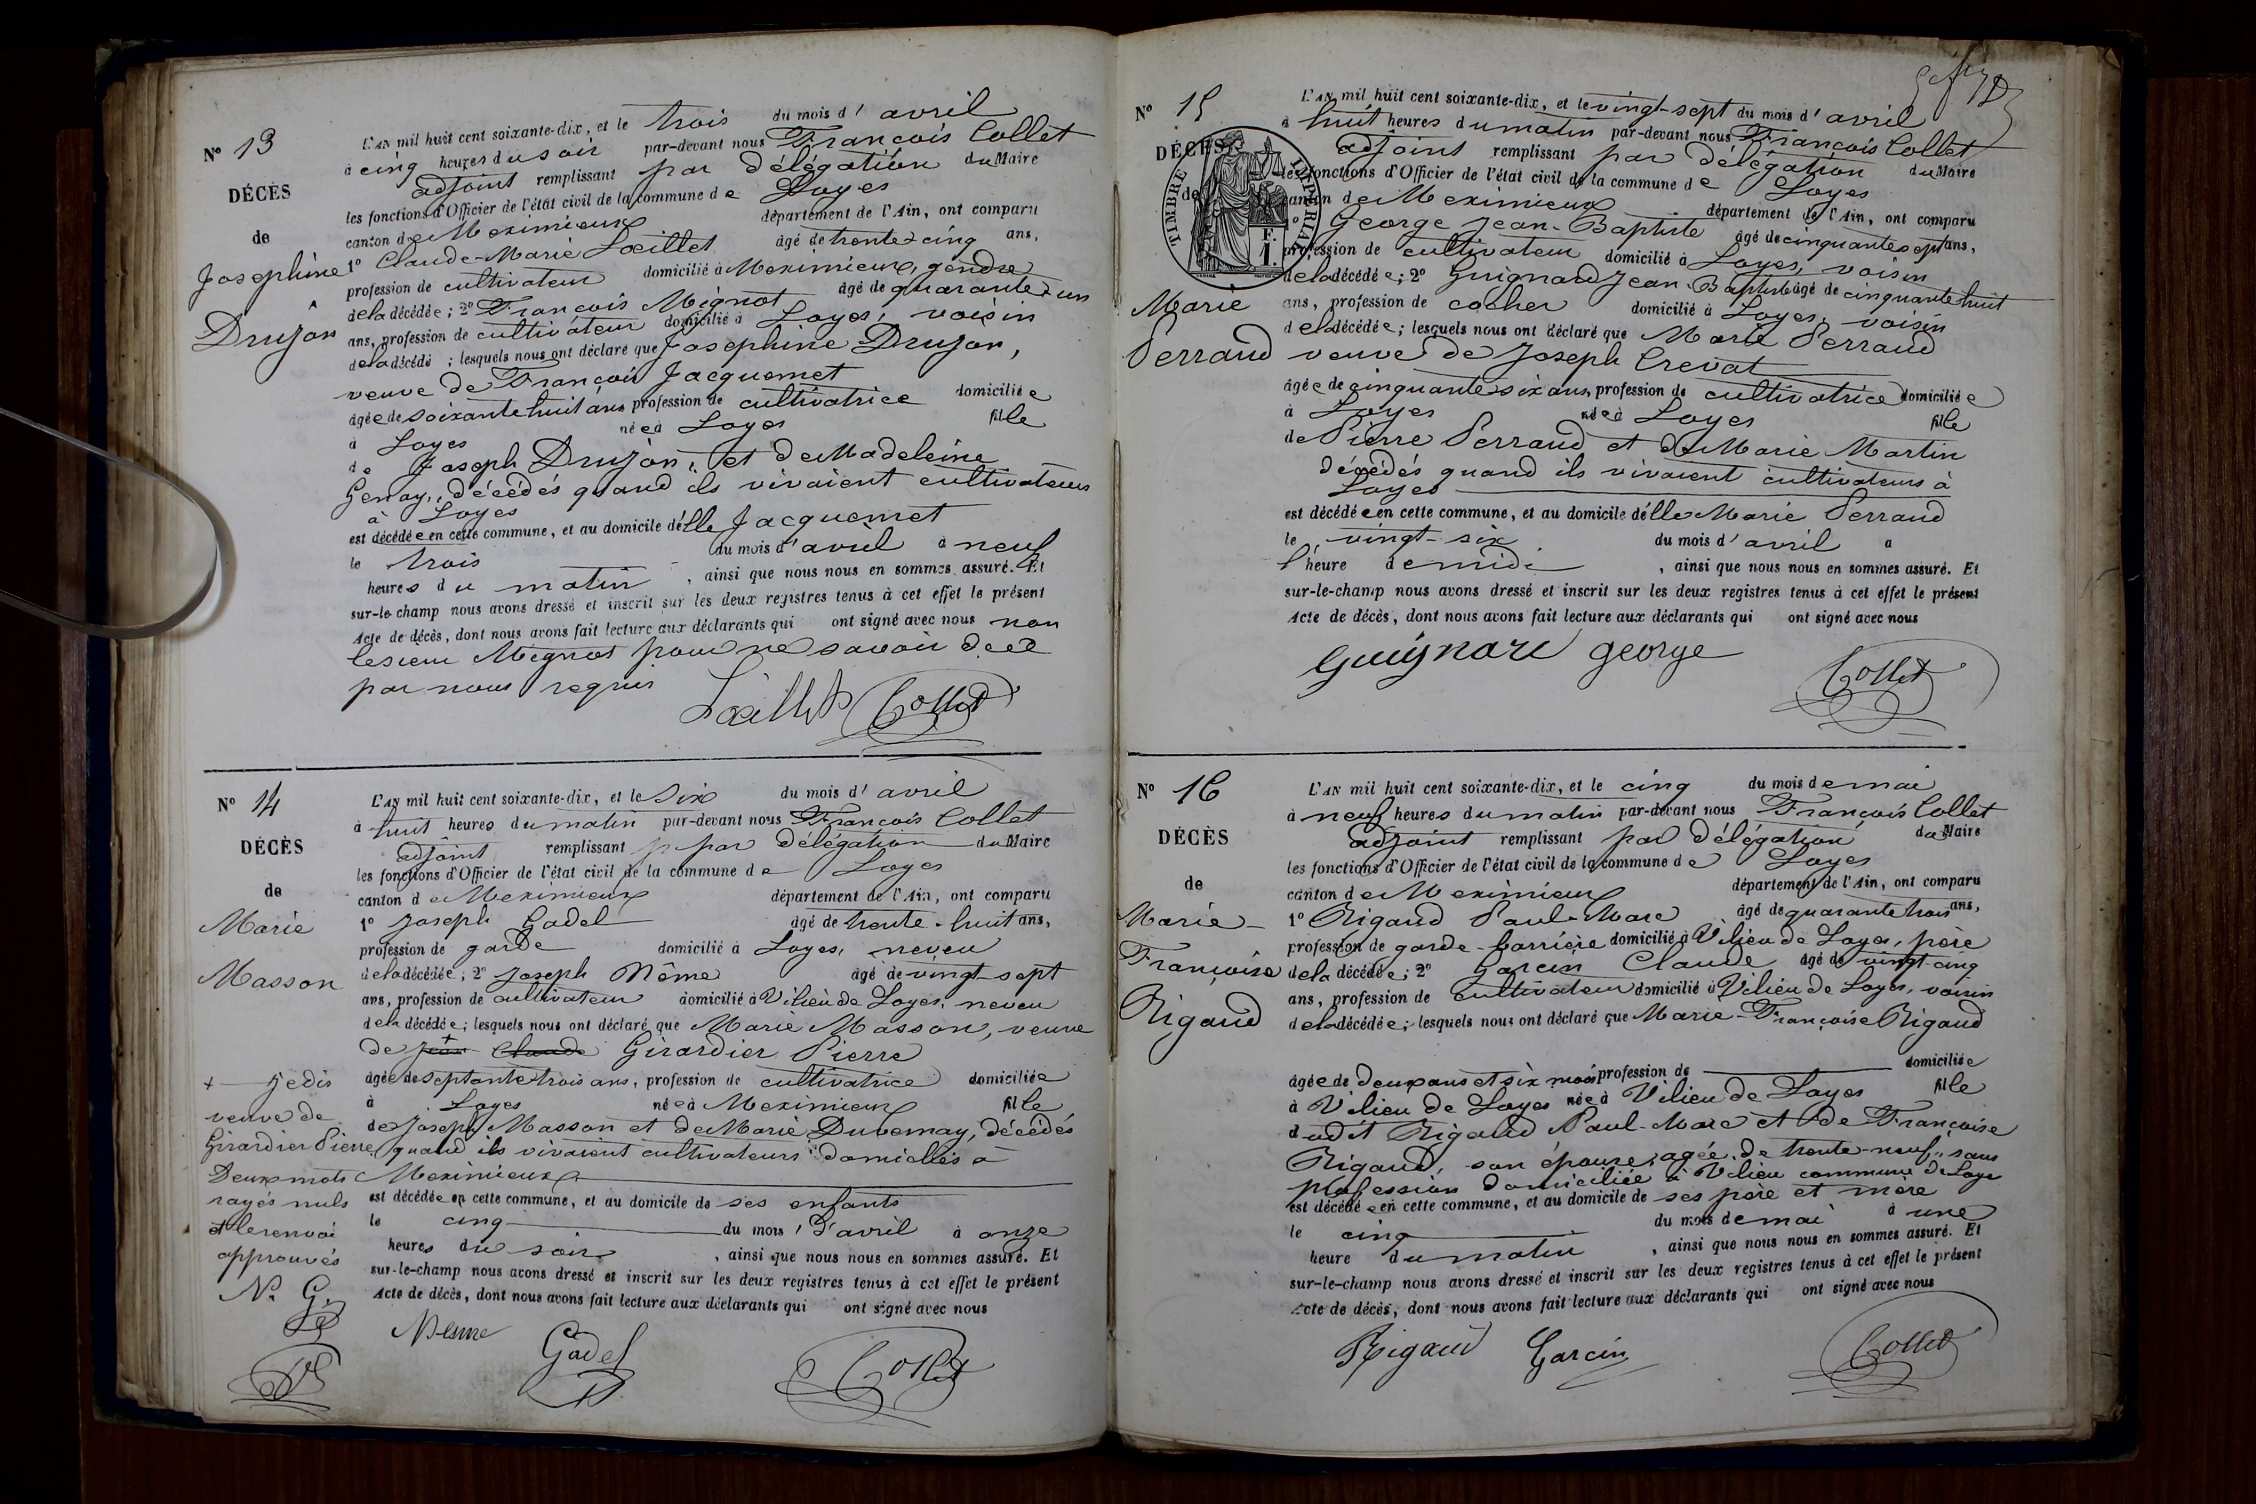 N° 13
DÉCÈS
de
Josephine
Drujon
L'AN mil huit cent soixante-dix, et le trois du mois d'avril
à cinq heures du soir par-devant nous François Collet
adjoint remplissant par délégation du Maire
les fonctions d'Officier de l'état civil de la commune de Loyes
canton de Meximieux département de l'Ain, ont comparu
1° Claude-Marie Lœillet âgé de trente-cinq ans,
profession de cultivateur domicilié à Meximieux, gendre
de la décédée; 2° François Mignot âgé de quarante-un
ans, profession de cultivateur domicilié à Loyes, voisin
de la décédé ; lesquels nous ont déclaré que Josephine Drujon,
veuve de François Jacquemet
âgée de soixante huit ans profession de cultivatrice domiciliée
à Loyes née à Loyes fille
de Joseph Drujon, et de Madeleine
Genay, décédés quand ils vivaient cultivateurs
à Loyes
est décédée en cette commune, et au domicile d'elle Jacquemet
le trois du mois d'avril à neuf
heures du matin , ainsi que nous nous en sommes assuré. Et
sur-le-champ nous avons dressé et inscrit sur les deux registres tenus à cet effet le présent
Acte de décès, dont nous avons fait lecture aux déclarants qui ont signé avec nous non
le sieur Mignot pour ne savoir de ce
par nous requis
Lœillet Collet
N° 14
DÉCÈS
de
Marie
Masson
L'AN mil huit cent soixante-dix, et le six du mois d'avril
à huit heures du matin par-devant nous François Collet
adjoint remplissant p par délégation du Maire
les fonctions d'Officier de l'état civil de la commune de Loyes
canton de Meximieux département de l'Ain, ont comparu
1° Joseph Gadel âgé de trente-huit ans,
profession de garde domicilié à Loyes, neveu
de la décédée; 2° Joseph Nême âgé de vingt-sept
ans, profession de cultivateur domicilié à Vilieu de Loyes, neveu
de la décédée; lesquels nous ont déclaré que Marie Masson, veuve
de Jean Claude Girardier Pierre
+ je dis
veuve de
Girardier Pierre
Deux mots
rayés nuls
et le renvoi
approuvés
N. G.
âgée de septante trois ans, profession de cultivatrice domiciliée
à Loyes née à Meximieux fille
de Joseph Masson et de Marie Duvernay, décédés
quand ils vivaient cultivateurs domiciliés à
Meximieux
est décédée en cette commune, et au domicile de ses enfants
le cinq du mois d'avril à onze
heures du soir , ainsi que nous nous en sommes assuré. Et
sur-le-champ nous avons dressé et inscrit sur les deux registres tenus à cet effet le présent
Acte de décès, dont nous avons fait lecture aux déclarants qui ont signé avec nous
Nesme Gadel Collet
N° 15
DÉCÈS
de
TIMBRE IMPERIAL
F.
1.
Marie
Perraud
L'AN mil huit cent soixante-dix, et le vingt-sept du mois d'avril
à huit heures du matin par-devant nous François Collet
adjoint remplissant par délégation du Maire
les fonctions d'Officier de l'état civil de la commune de Loyes
canton de Meximieux département de l'Ain, ont comparu
1° George Jean-Baptiste âgé de cinquante sept ans,
profession de cultivateur domicilié à Loyes, voisin
de la décédée; 2° Guignard Jean-Baptiste âgé de cinquante huit
ans, profession de cocher domicilié à Loyes, voisin
de la décédée; lesquels nous ont déclaré que Marie Perraud
veuve de Joseph Crevat
âgée de cinquante six ans, profession de cultivatrice domiciliée
à Loyes née à Loyes fille
de Pierre Perraud et de Marie Martin
décédés quand ils vivaient cultivateurs à
Loyes
est décédée en cette commune, et au domicile d'elle Marie Perraud
le vingt-six du mois d'avril à
l'heure de midi , ainsi que nous nous en sommes assuré. Et
sur-le-champ nous avons dressé et inscrit sur les deux registres tenus à cet effet le présent
Acte de décès, dont nous avons fait lecture aux déclarants qui ont signé avec nous
Guignard george Collet
N° 16
DÉCÈS
de
Marie-
Françoise
Rigaud
L'AN mil huit cent soixante-dix, et le cinq du mois de mai
à neuf heures du matin par-devant nous François Collet
adjoint remplissant par délégation du Maire
les fonctions d'Officier de l'état civil de la commune de Loyes
canton de Meximieux département de l'Ain, ont comparu
1° Rigaud Paul-Marc âgé de quarante trois ans,
profession de garde-barrière domicilié à Vilieu de Loyes, père
de la décédée; 2° Garcin Claude âgé de vingt-cinq
ans, profession de cultivateur domicilié à Vilieu de Loyes, voisin
de la décédée; lesquels nous ont déclaré que Marie-Françoise Rigaud
âgée de deux ans et six mois profession de domiciliée
à Vilieu de Loyes née à Vilieu de Loyes fille
dudit Rigaud Paul-Marc et de Françoise
Rigaud, son épouse, agée de trente-neuf, sans
profession domiciliée à Vilieu commune de Loyes
est décédée en cette commune, et au domicile de ses père et mère
le cinq du mois de mai à une
heure du matin , ainsi que nous nous en sommes assuré. Et
sur-le-champ nous avons dressé et inscrit sur les deux registres tenus à cet effet le présent
Acte de décès, dont nous avons fait lecture aux déclarants qui ont signé avec nous
Rigaud Garcin Collet